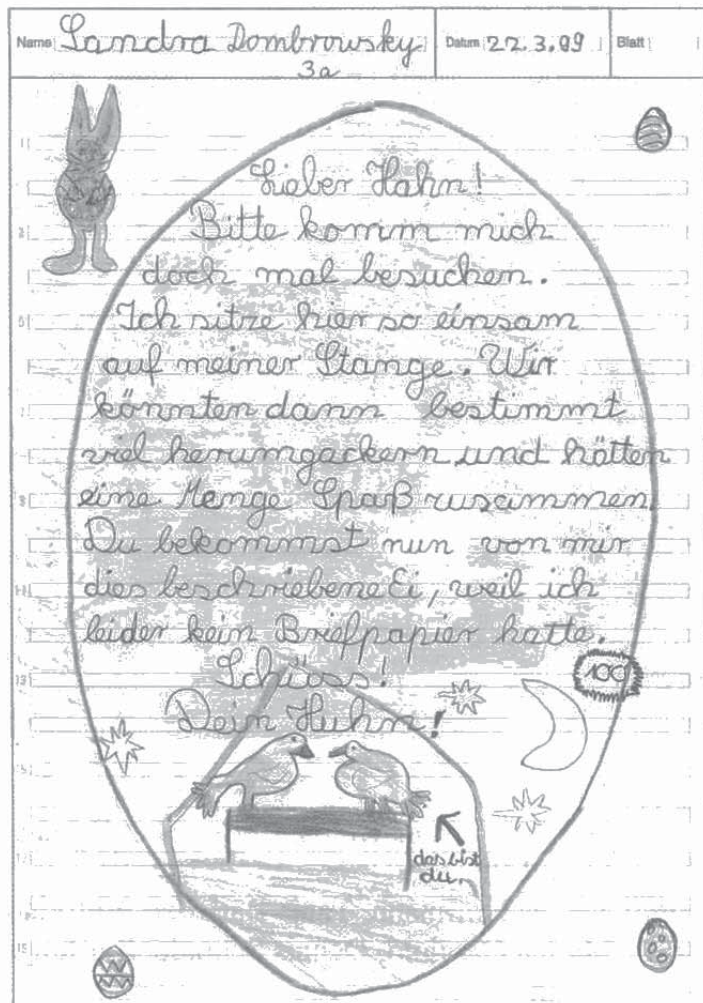 Name Sandra Dombrowsky Datum 22.3.99 Blatt
3a
Lieber Hahn!
Bitte komm mich
doch mal besuchen.
Ich sitze hier so einsam
auf meiner Stange. Wir
könnten dann bestimmt
viel herumgackern und hätten
eine Menge Spaß zusammen.
Du bekommst nun von mir
dies beschriebene Ei, weil ich
leider kein Briefpapier hatte.
Tschüss!
100
Dein Huhn!
das bist
du